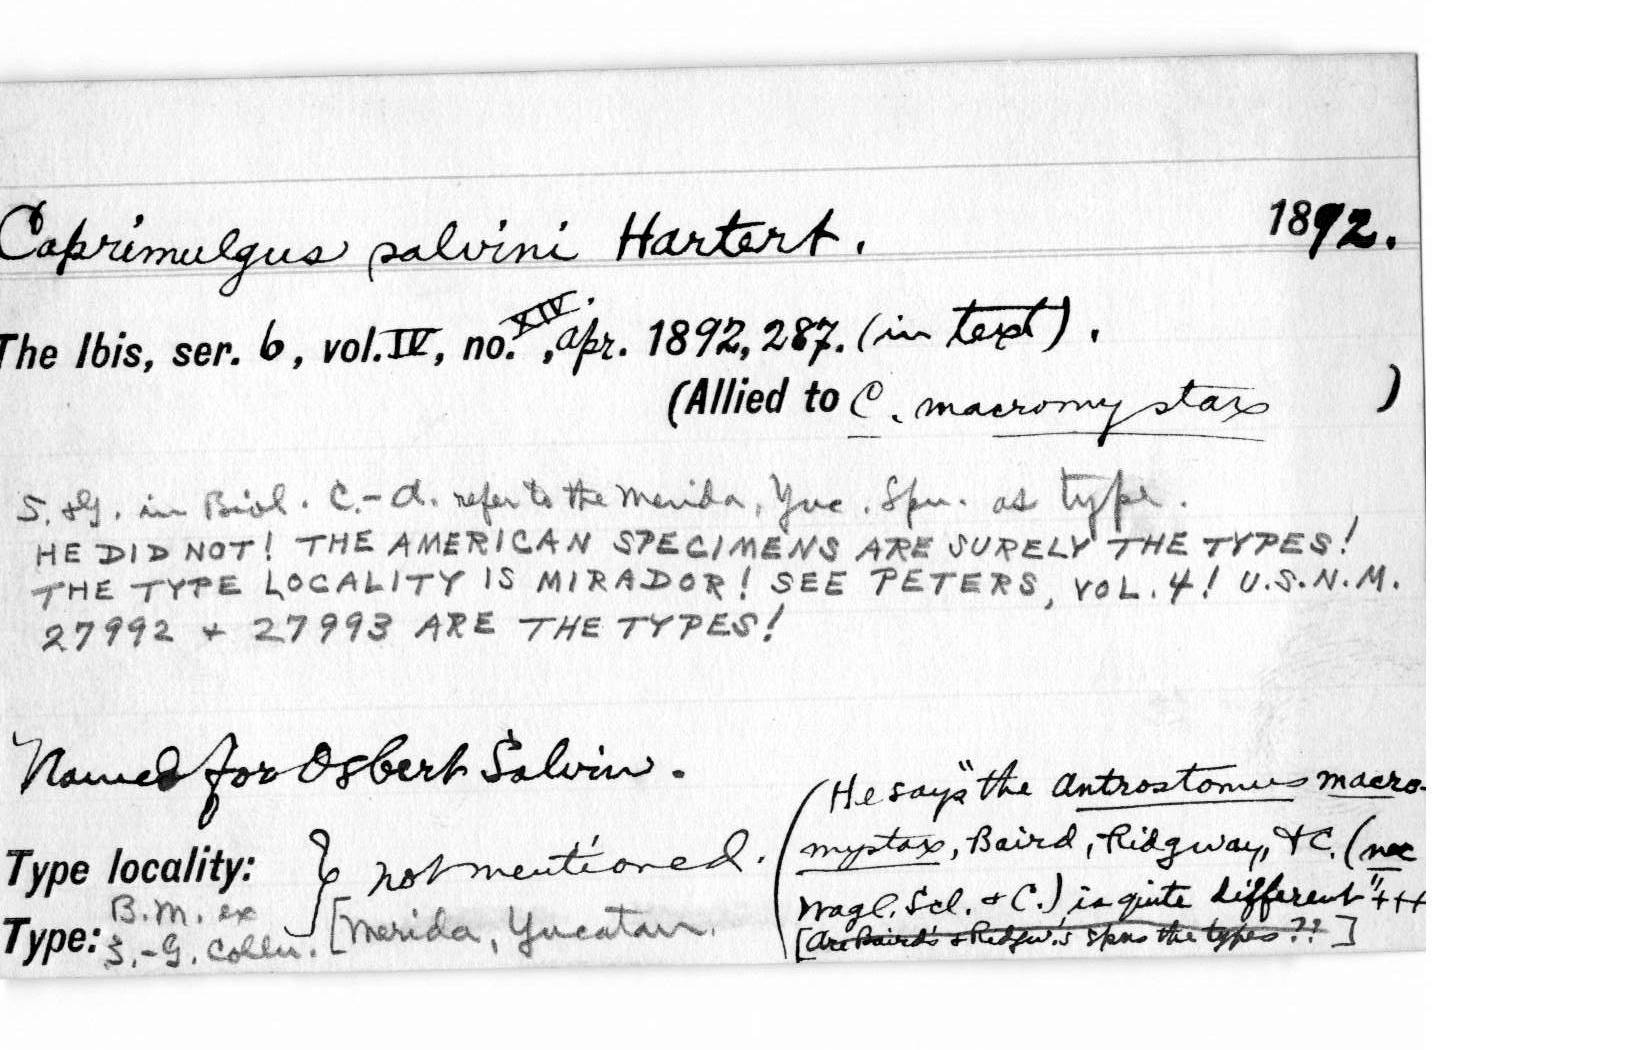 Caprimulgus salvini Hartert. 1892.
The Ibis, ser. 6, vol. IV, no. XIV., Apr. 1892, 287. (in text).
(Allied to C. macromystax )
S. & G. in Biol. C.-A. refer to the Merida, Yuc. Spn. as type.
HE DID NOT! THE AMERICAN SPECIMENS ARE SURELY THE TYPES!
THE TYPE LOCALITY IS MIRADOR! SEE PETERS, VOL. 4! U.S.N.M.
27992 + 27993 ARE THE TYPES!
Named for Osbert Salvin.
(He says "the Antrostomus macro-
mystax, Baird, Ridgway, & C. (nec
Wagl. Scl. & C.) is quite different" +++
[Are Baird's & Ridgw.'s spns the types??]
Type locality: } not mentioned.
Type: B.M. ex
S.-G. Colln. [Merida, Yucatan.